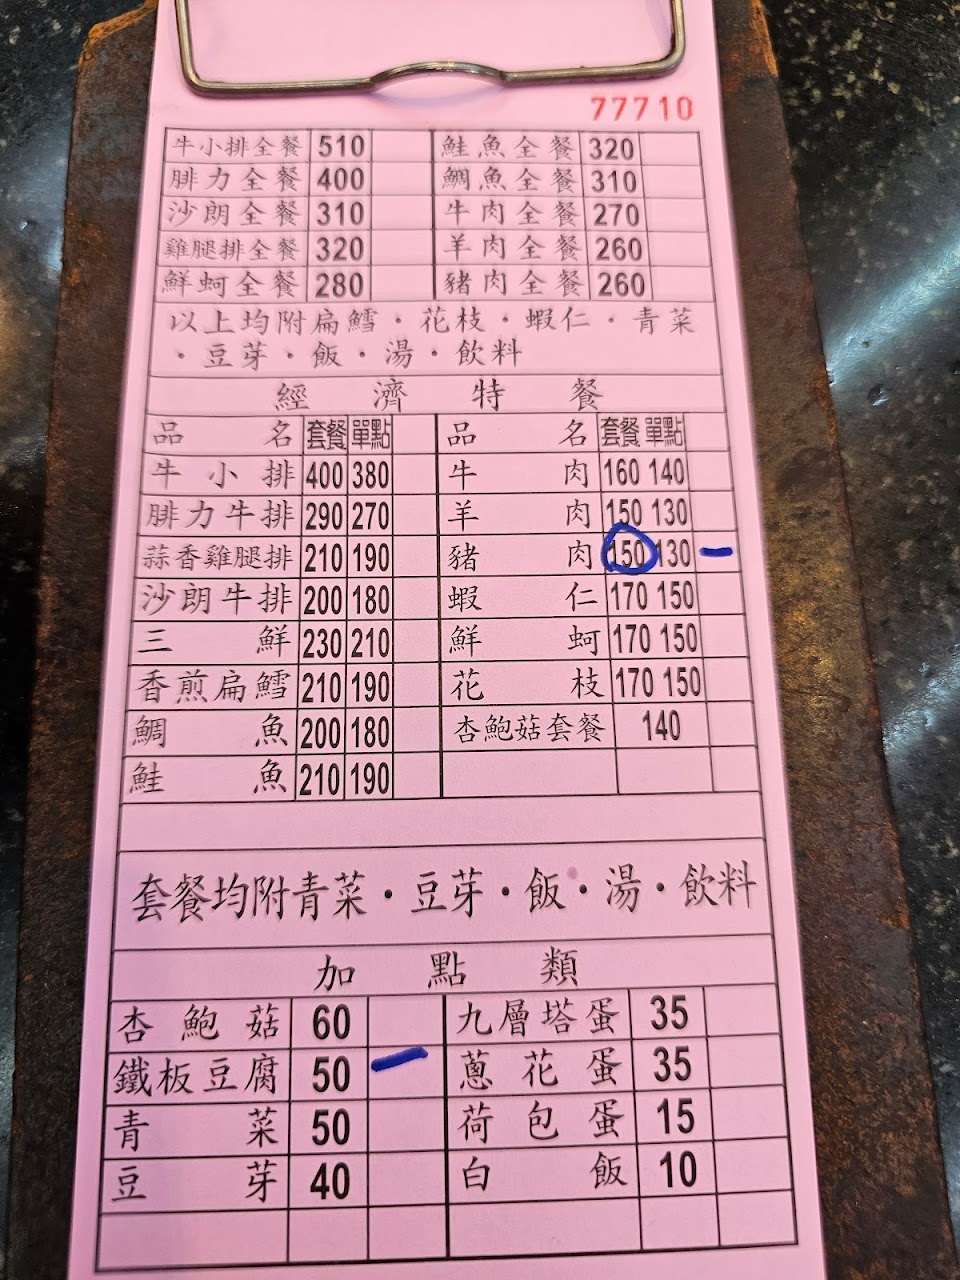 77710
牛小排全餐 510 鮭魚全餐 320
腓力全餐 400 鯛魚全餐 310
沙朗全餐 310 牛肉全餐 270
雞腿排全餐 320 羊肉全餐 260
鮮蚵全餐 280 豬肉全餐 260
以上均附扁鱈・花枝・蝦仁・青菜
・豆芽・飯・湯・飲料
經濟特餐
品名 套餐 單點 品名 套餐 單點
牛小排 400 380 牛肉 160 140
腓力牛排 290 270 羊肉 150 130
蒜香雞腿排 210 190 豬肉 150 130 一
沙朗牛排 200 180 蝦仁 170 150
三鮮 230 210 鮮蚵 170 150
香煎扁鱈 210 190 花枝 170 150
鯛魚 200 180 杏鮑菇套餐 140
鮭魚 210 190
套餐均附青菜・豆芽・飯・湯・飲料
加點類
杏鮑菇 60 九層塔蛋 35
鐵板豆腐 50 一 蔥花蛋 35
青菜 50 荷包蛋 15
豆芽 40 白飯 10